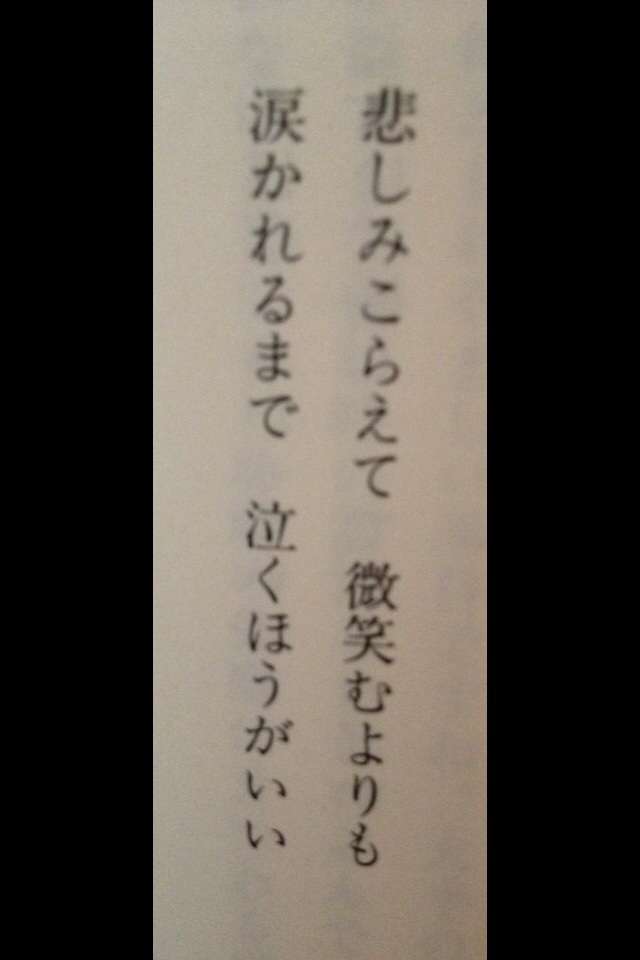 悲しみこらえて 微笑むよりも
涙かれるまで 泣くほうがいい